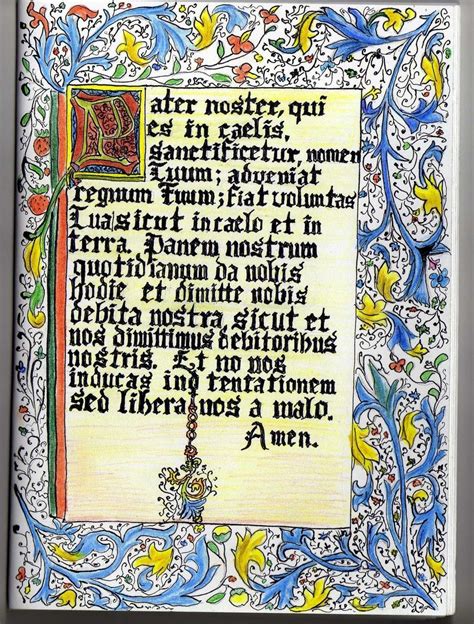 Pater noster, qui
es in caelis,
sanctificetur, nomen
Tuum; adveniat
regnum Tuum; fiat voluntas
Tua sicut in caelo et in
terra. Panem nostrum
quotidianum da nobis
hodie et dimitte nobis
debita nostra, sicut et
nos dimittimus debitoribus
nostris. Et no nos
inducas ind tentationem
sed libera nos a malo.
Amen.